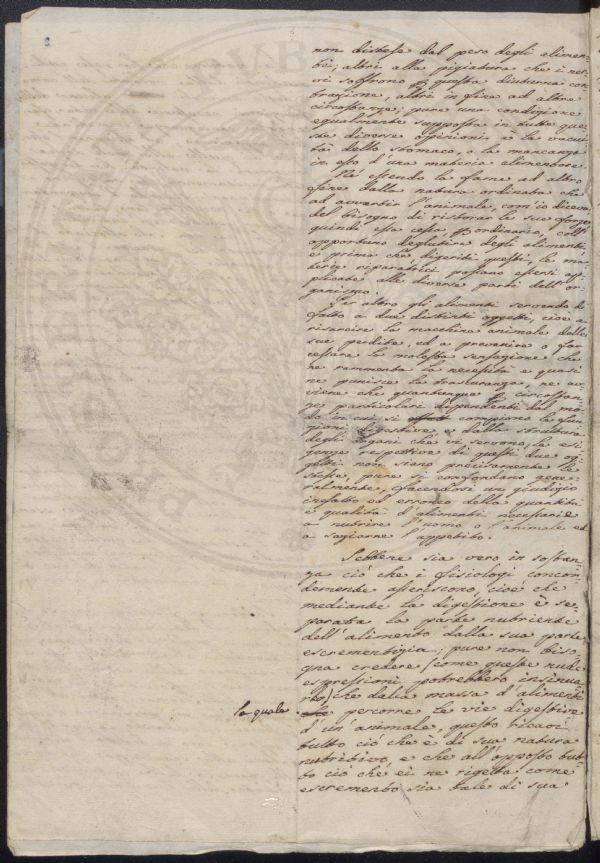 non distese dal peso degli alimen-
ti; altri alla pigiatura che i ner-
vi soffrono p questa diuturna con-
trazione, altri in fine ad altre
circostanze; pure una condizione
egualmente supposta in tutte que-
ste diverse opinioni, è la vacui-
tà dello stomaco, o la mancanza
in esso d'una materia alimentare.
Nè essendo la fame ad altro
fine dalla natura ordinata che
ad avvertir l'animale, com'io diceva
del bisogno di ristorar le sue forze
quindi essa cessa p ordinario, coll'
opportuno deglutire degli alimenti,
e prima che digeriti questi, le ma-
terie riparatrici possano essersi ap-
plicate alle diverse parti dell'or-
ganismo.
Per altro gli alimenti servendo di
fatto a due distinti oggetti, cioè a
risarcire la macchina animale delle
sue perdite, ed a prevenire o far
cessare la molesta sensazione che
ne rammenta la necessità e quasi
ne punisce la trascuranza, ne av-
viene che quantunque p circostan-
ze particolari dipendenti dal mo-
do in cui si compiono le fun-
zioni digestive e dalla struttura
degli organi che vi servono, le esi-
genze respettive di questi due og-
getti non sieno precisamente le
stesse, pure si confondano gene-
ralmente, facendosi un giudizio
inesatto ed erroneo della quantità
e qualità d'alimenti necessarie
a nutrire l'uomo o l'animale ed
a saziarne l'appetito.
Sebbene sia vero in sostan-
za ciò che i fisiologi concor-
demente asseriscono, cioè che
mediante la digestione è se-
parata la parte nutriente
dell'alimento dalla sua parte
escrementizia; pure non biso-
gna credere (come queste nude
espressioni potrebbero insinua-
re) che dalla massa d'alimenti
la quale percorre le vie digestive
d'un'animale, questo ricavi
tutto ciò che è di sua natura
nutritivo, e che all'opposto tut-
to ciò ch'ei ne rigetta come
escremento sia tale di sua